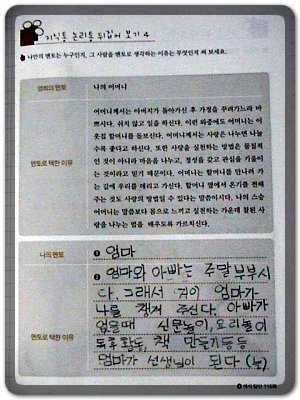 지식통 논리통 뒤집어 보기 4
나만의 멘토는 누구인지, 그 사람을 멘토로 생각하는 이유는 무엇인지 써 보세요.
멘토
나의 어머니
어머니께서는 아버지가 돌아가신 후 가정을 꾸려가느라 바
쁘시다. 쉬지 않고 일을 하신다. 이런 와중에도 어머니는 이
웃집 할머니를 돌보신다. 어머니께서는 사랑은 나누면 나눌
수록 좋다고 하신다. 또한 사랑을 실천하는 방법은 물질적
인 것이 아니라 마음을 나누고, 정성을 갖고 관심을 기울이
는 것이라고 믿기 때문이다. 어머니는 할머니를 만나러 가
는 길에 우리를 데리고 가신다. 할머니 옆에서 온기를 전해
주는 것도 사랑의 방법일 수 있다는 말씀이시다. 나의 스승
어머니는 말씀보다 몸으로 느끼고 실천하는 가운데 참된 사
랑을 나누는 법을 배우도록 가르치신다.
멘토로 택한 이유
나의 멘토
① 엄마
② 엄마와 아빠는 주말부부시
다. 그래서 거의 엄마가
나를 챙겨 주신다. 아빠가
없을때 신문놀이, 요리놀이
독후활동, 책 만들기등등
엄마가 선생님이 된다 (논)
멘토로 택한 이유
예시 답안 116쪽